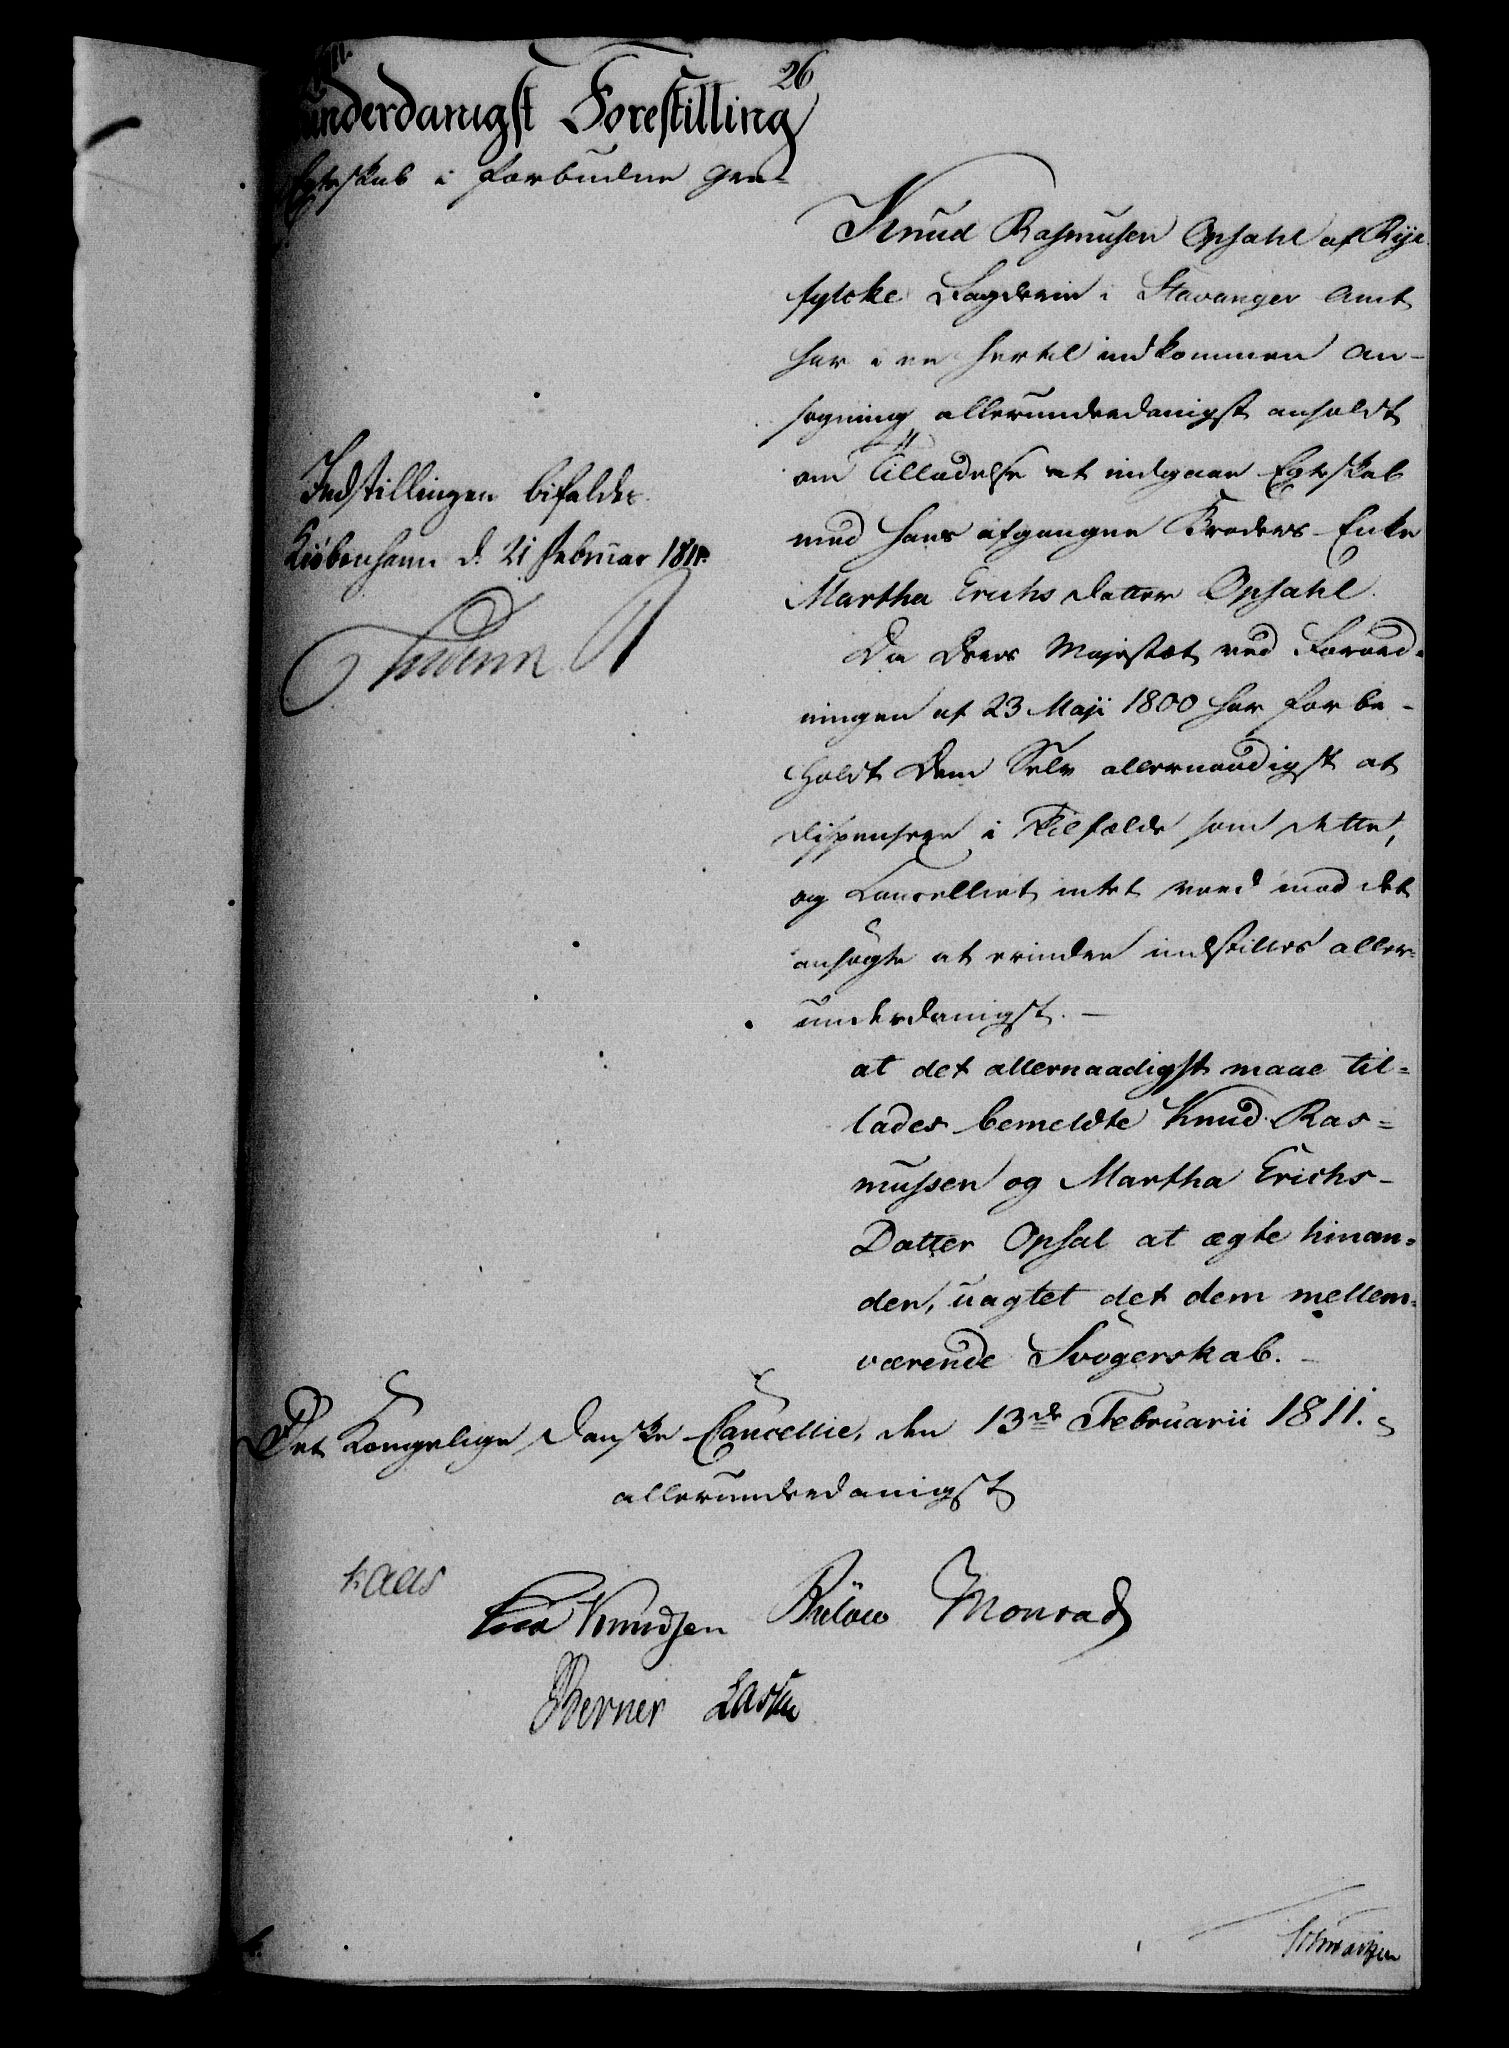 26
underdanigst Forestilling
Egteskab i forbudne Gra-
Knud Rasmusen Opsahl af Rye
fylcke Fogderie i Stavanger Amt
har i en hertil indkommen An-
søgning allerunderdanigst anholdt
om Tilladelse at indgaae Egteskab
med hans afgangne Broders Enke
Martha Erichsdatter Opsahl.
Da Deres Majestæt ved Forord-
ningen af 23 Maji 1800 har forbe-
holdt Dem Selv allernaadigst at
dispensere i Tilfælde som dette,
og Cancelliet intet veed mod det
ansøgte at erindre indstilles aller-
underdanigst. —
at det allernaadigst maae til-
lades bemeldte Knud Ras-
mussen og Martha Erichs-
Datter Opsal at ægte hinan-
den, uagtet det dem mellem-
værende Svogerskab.
Indstillingen bifaldes.
Kiöbenhavn d. 21 Februar 1811.
Frideric R
Det Kongelige Danske Cancellie, den 13de Februarii 1811.
allerunderdanigst
Kaas
Knudsen Bülow Monrad
Berner Lassen